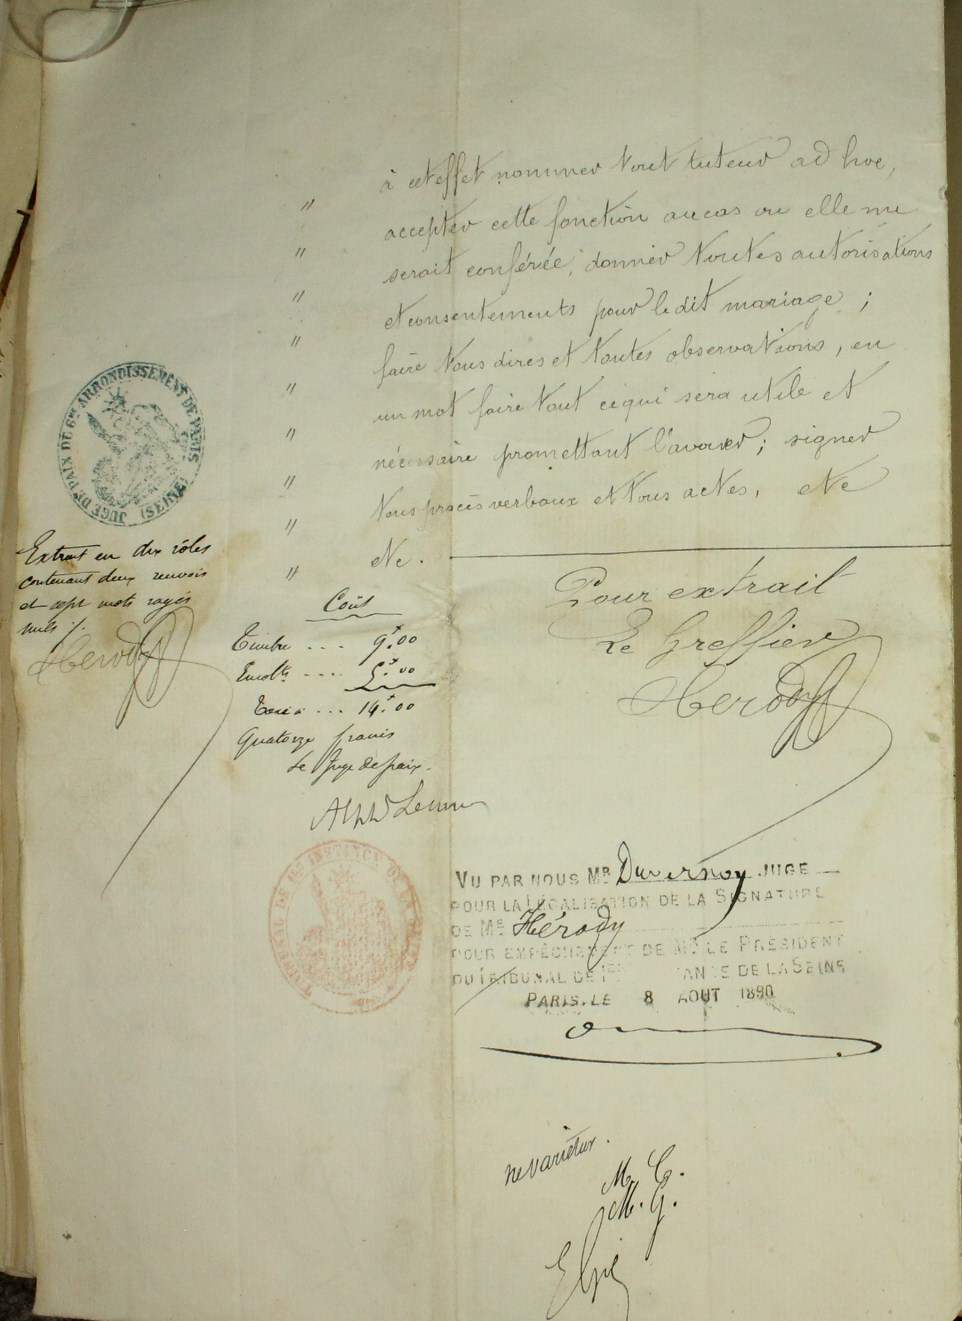 à cet effet nommer tout tuteur ad hoc,
" accepter cette fonction au cas où elle me
" serait conférée, donner toutes autorisations
" et consentements pour le dit mariage ;
" faire tous dires et toutes observations, en
" un mot faire tout ce qui sera utile et
" nécessaire promettant l'avouer ; signer
" tous procès verbaux et tous actes, etc
" etc.
"
JUGE DE PAIX DU 6me ARRONDISSEMENT DE PARIS (SEINE)
Extrait en dix rôles
contenant deux renvois
et sept mots rayés
nuls ./.
Herody
Coût
Timbre ... 9f.00
.... 5f.00
... 14f.00
Quatorze francs
Le Juge de paix.
Pour extrait
Le Greffier
Herody
TRIBUNAL DE 1ERE INSTANCE DE LA SEINE
VU PAR NOUS MR Duvernoy JUGE
POUR LA LÉGALISATION DE LA SIGNATURE
DE ME Hérody
POUR EMPÊCHEMENT DE MR LE PRÉSIDENT
DU TRIBUNAL DE 1ÈRE INSTANCE DE LA SEINE
PARIS, LE 8 AOUT 1890
ne varietur.
M. C.
M. G.